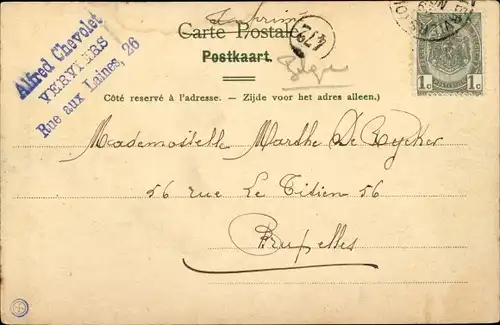 Imprimé
Carte Postale
Postkaart.
Alfred Chevolet
VERVIERS
Rue aux Laines, 26
Belge
1c 1c
Côté reservé à l'adresse. – Zijde voor het adres alleen.)
Mademoiselle Marthe De Eycker
56 rue Le Titien 56
Bruxelles